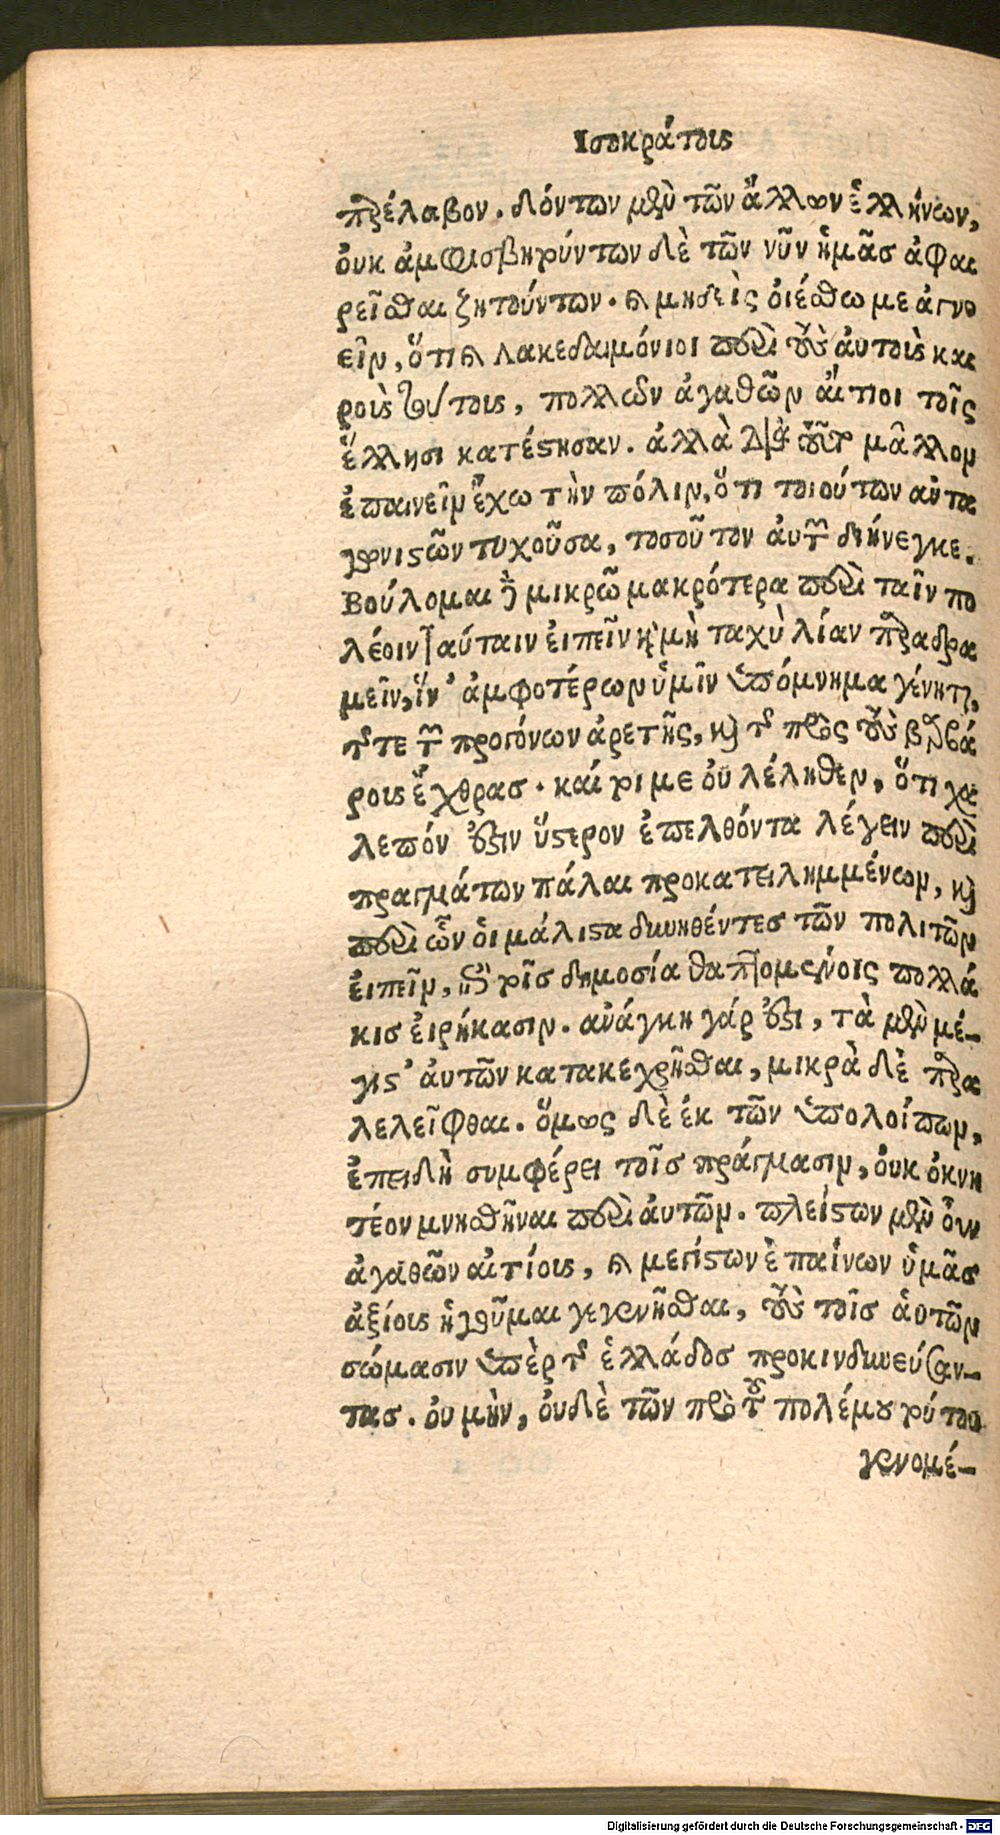 Ισοκράτους
παρέλαβον. δόντων μὲν τῶν ἄλλων ἑλλήνων,
ὀυκ ἀμφισβητούντων δὲ τῶν νῦν ἡμᾶς ἀφαι
ρεῖσθαι ζητούντων. καὶ μηδεὶς ὀιέσθω με ἀγνο
εῖν, ὅτι καὶ λακεδαιμόνιοι περὶ τοὺς ἀυτοὺς και
ροὺς τούτους, πολλῶν ἀγαθῶν ἄιτιοι τοῖς
ἕλλησι κατέστησαν. ἀλλὰ διὰ τοῦτο μᾶλλον
ἐπαινεῖν ἔχω τὴν πόλιν, ὅτι τοιούτων ἀντα
γωνιστῶν τυχοῦσα, τοσοῦτον ἀυτῶν διήνεγκε.
Βούλομαι δὲ μικρῶ μακρότερα περὶ ταῖν πο
λέοιν ταύταιν ἐιπεῖν καὶ μὴ ταχὺ λίαν παραδρα
μεῖν, ἵν' ἀμφοτέρων ὑμῖν ὑπόμνημα γένηται,
τῆς τε τῶν προγόνων ἀρετῆς, καὶ τῆς πρὸς τοὺς βαρβά
ρους ἔχθρας. καίτοι με ὀυ λέληθεν, ὅτι χα
λεπόν ἐστιν ὕστερον ἐπελθόντα λέγειν περὶ
πραγμάτων πάλαι προκατειλημμένων, καὶ
περὶ ὧν ὁι μάλιστα δυνηθέντες τῶν πολιτῶν
ἐιπεῖν, ἐπὶ τοῖς δημοσία θαπτομένοις πολλά
κις ἐιρήκασιν. ἀνάγκη γάρ ἐστι, τὰ μὲν μέ-
γιστ' ἀυτῶν κατακεχρῆσθαι, μικρὰ δὲ παρα
λελεῖφθαι. ὅμως δὲ ἐκ τῶν ὑπολοίπων,
ἐπειδὴ συμφέρει τοῖς πράγμασιν, ὀυκ ὀκνη
τέον μνησθῆναι περὶ ἀυτῶν. πλείστων μὲν ὂυν
ἀγαθῶν ἀιτίους, καὶ μεγίστων ἐπαίνων ὑμᾶς
ἀξίους ἡγοῦμαι γεγενῆσθαι, τοὺς τοῖς ἁυτῶν
σώμασιν ὑπὲρ τῆς ἑλλάδος προκινδυνεύσαν-
τας. ὀυ μὴν, ὀυδὲ τῶν πρὸ τοῦ πολέμου τούτου
γενομέ-
Digitalisierung gefördert durch die Deutsche Forschungsgemeinschaft - DFG